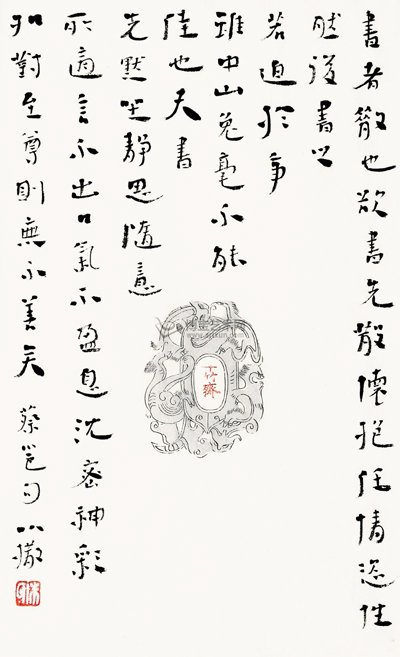 書者散也欲書先散懷抱任情恣性
然後書之
若迫於事
雖中山兔毫不能
佳也夫書
先默坐靜思隨意
所適言不出口氣不盈息沈密神彩
如對至尊則無不善矣 蔡邕句